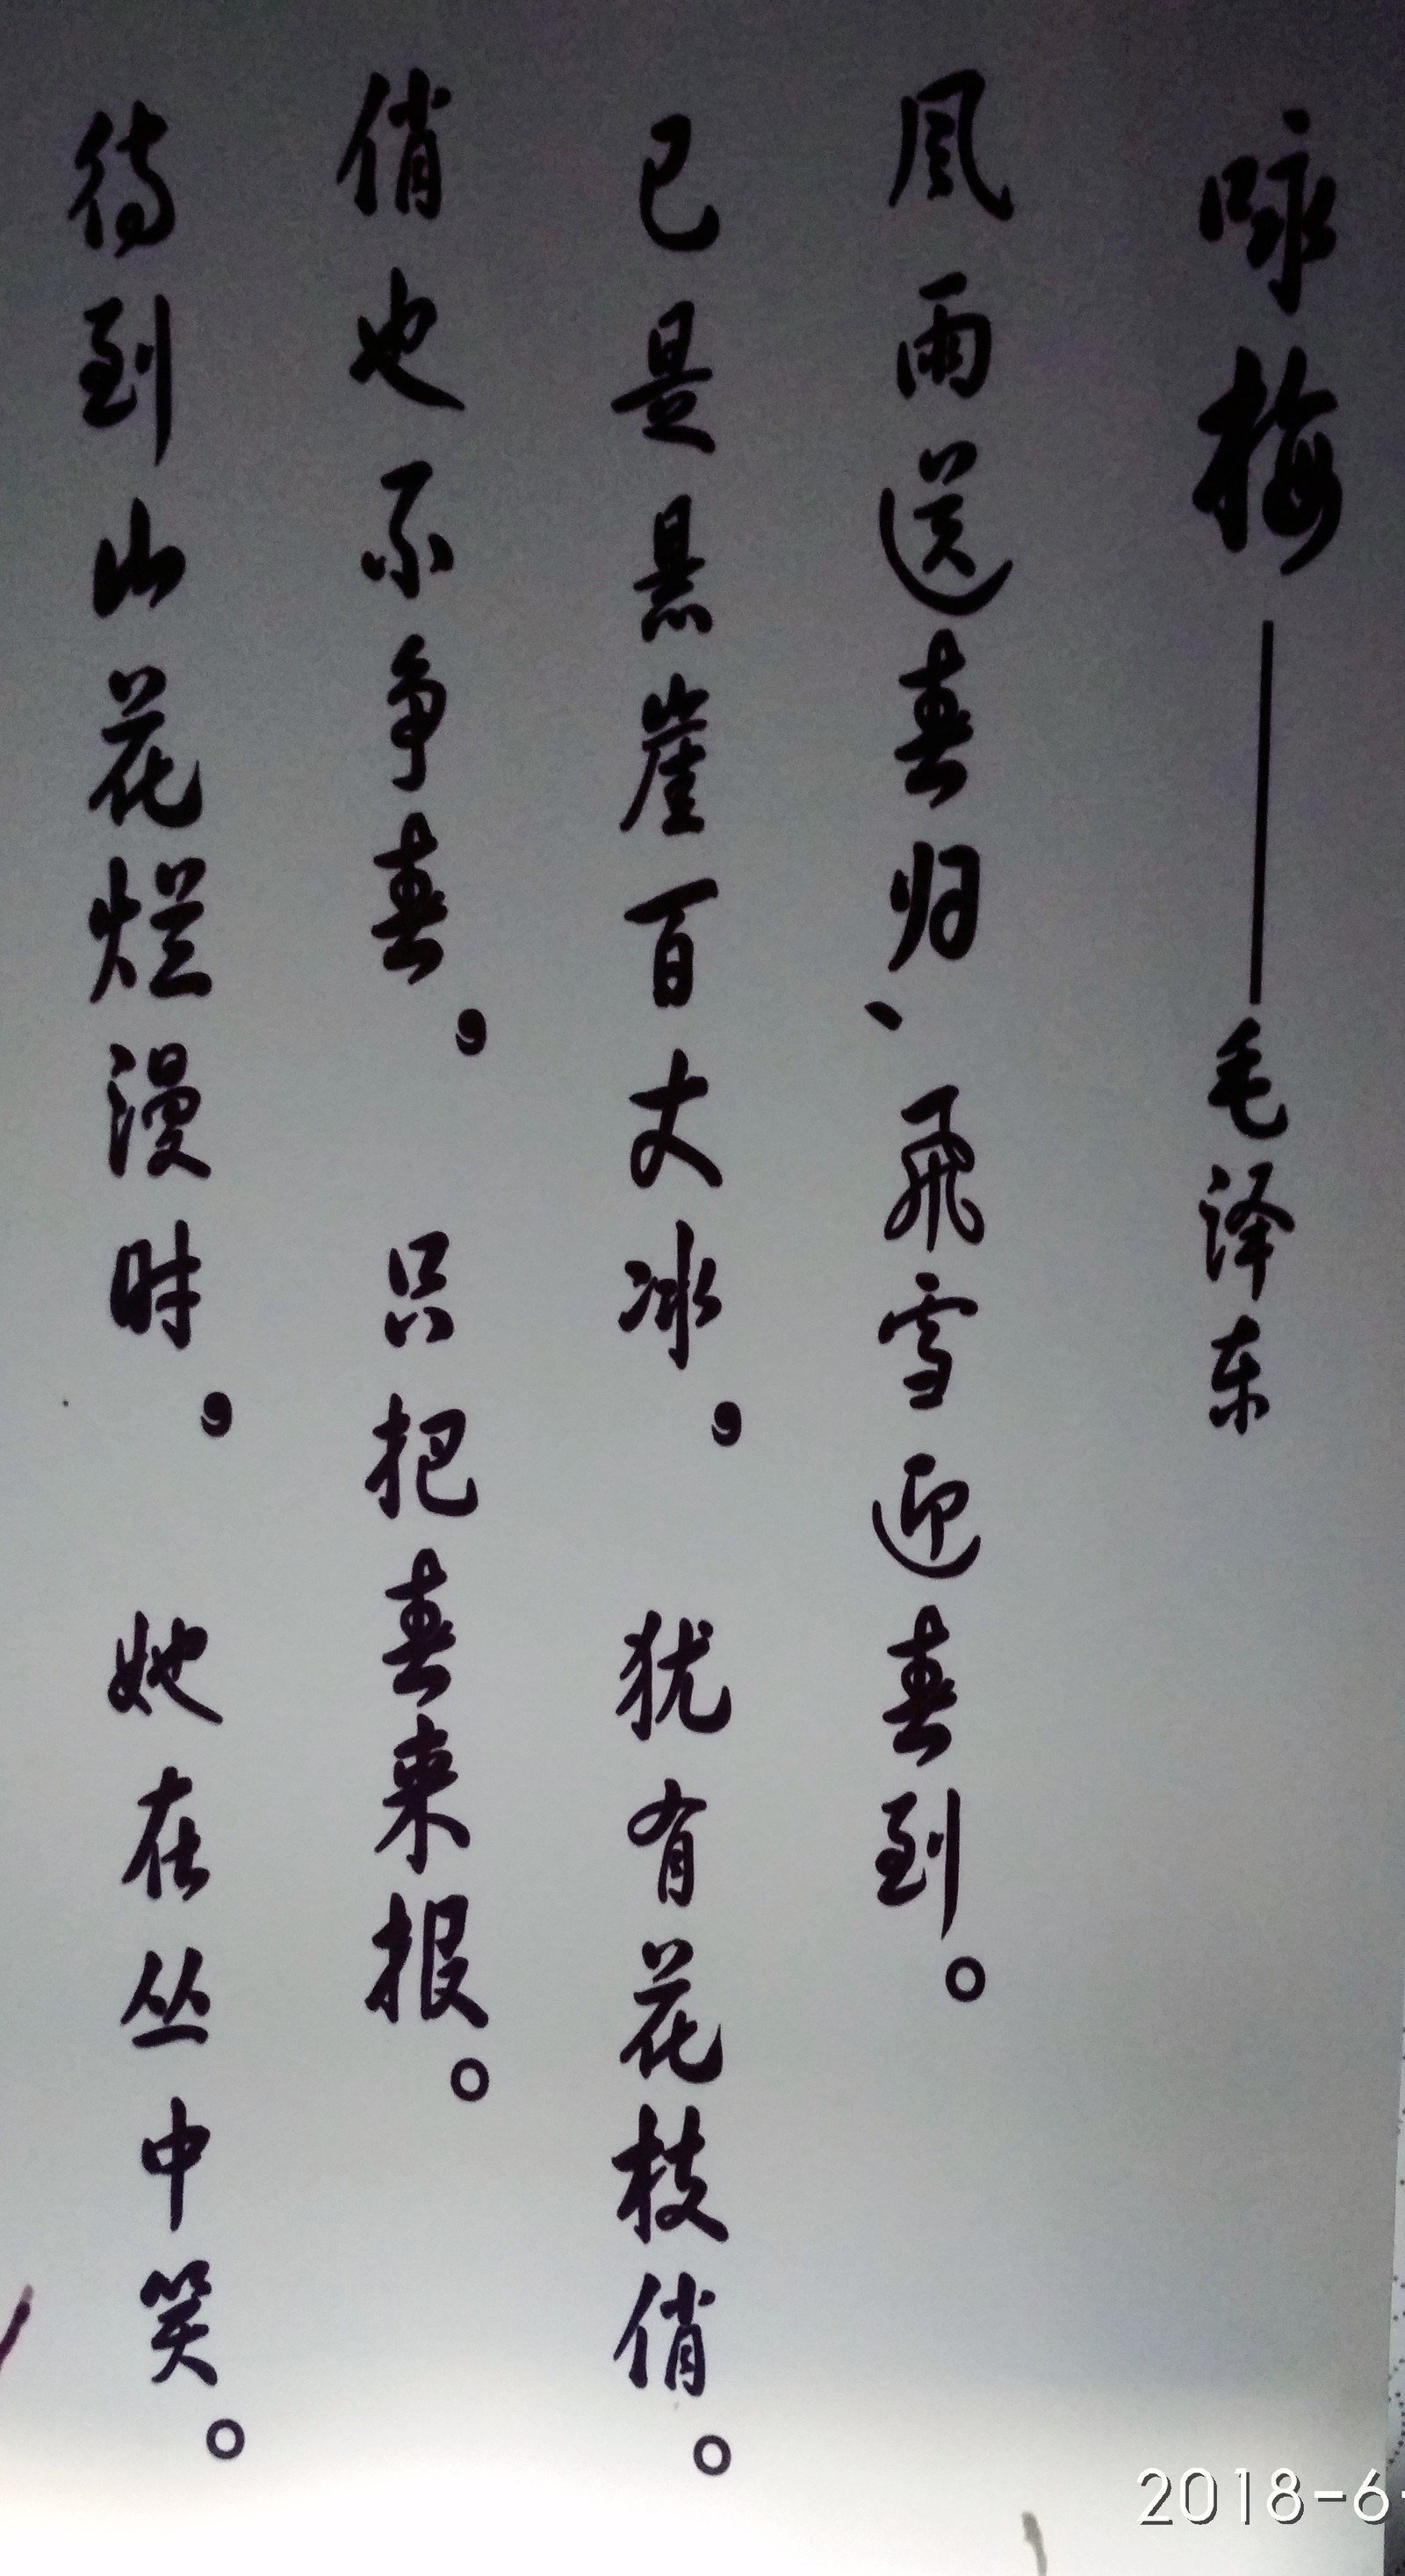 咏梅——毛泽东
风雨送春归、飛雪迎春到。
已是悬崖百丈冰，犹有花枝俏。
俏也不争春，只把春来报。
待到山花烂漫时，她在丛中笑。
2018-6-